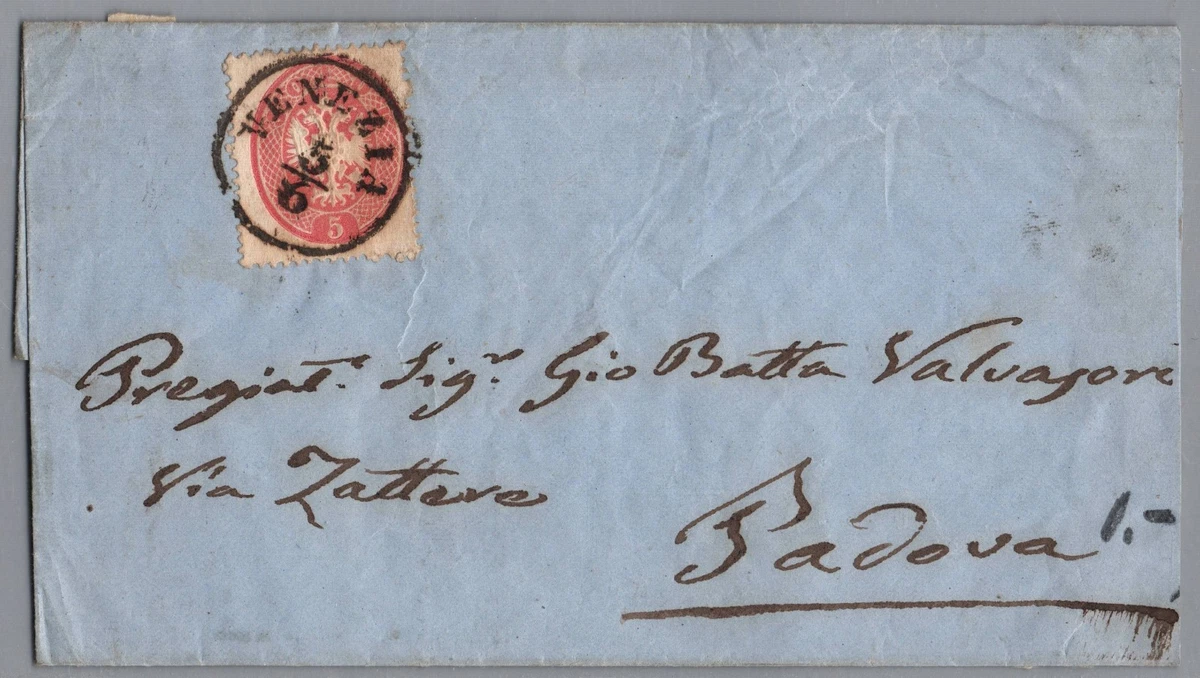 VENEZIA
5
Pregiat.e Sig.r Gio Batta Valvasori
Via Zattere
Padova
1.-